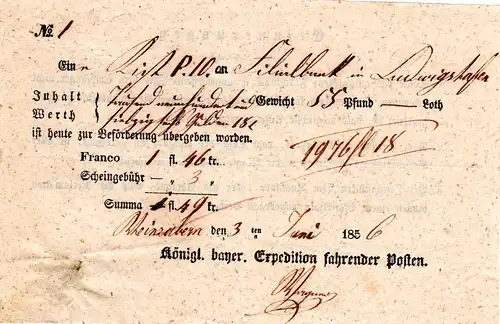 № 1
Eine Kist P. 10. an Filialbank in Ludwigshafen
Inhalt Tausend neunhundert Gewicht 55 Pfund — Loth
Werth siebzig sechs Gulden 18 x
ist heute zur Beförderung übergeben worden.
1976 fl 18
Franco 1 fl. 46 kr.
Scheingebühr — „ 3 „
Summa 1 fl. 49 kr.
Rheinzabern den 3 ten Juni 1856
Königl. bayer. Expedition fahrender Posten.